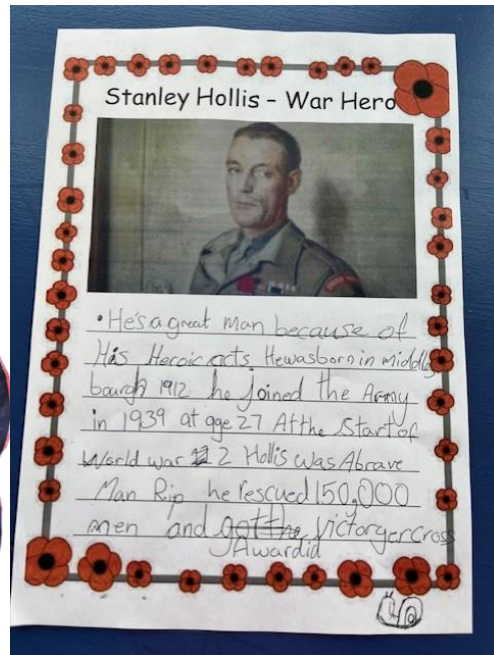 Stanley Hollis - War Hero
• He's a great man because of
His Heroic acts He was born in middles
bourgh 1912 he joined the Army
in 1939 at age 27 At the Start of
World war 2 Hollis was A brave
Man Rip he rescued 150,000
men and got the Victorgercross
Awardid